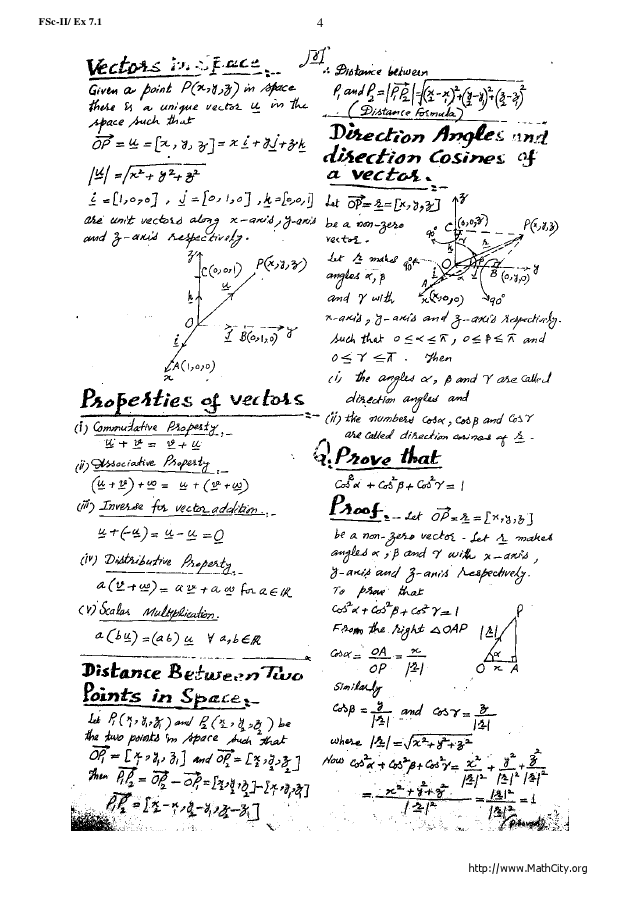 FSc-II/ Ex 7.1
4
Vectors in Space:-
Given a point P(x,y,z) in space
there is a unique vector u in the
space such that
OP = u = [x, y, z] = x i + y j + z k
|u| = √x² + y² + z²
i = [1,0,0] , j = [0,1,0] , k = [0,0,1]
are unit vectors along x-axis, y-axis
and z-axis respectively.
z
C(0,0,1)
P(x,y,z)
u
k
O
j
B(0,1,0)
y
i
A(1,0,0)
x
Properties of vectors:-
(i) Commutative Property:-
u + v = v + u
(ii) Associative Property
(u + v) + w = u + (v + w)
(iii) Inverse for vector addition:-
u + (-u) = u - u = O
(iv) Distributive Property:-
a(v + w) = a v + a w for a ∈ R
(v) Scalar Multiplication.
a(bu) = (ab) u ∀ a,b ∈ R
Distance Between Two
Points in Space:-
Let P₁(x₁,y₁,z₁) and P₂(x₂,y₂,z₂) be
the two points in space such that
OP₁ = [x₁,y₁,z₁] and OP₂ = [x₂,y₂,z₂]
Then P₁P₂ = OP₂ - OP₁ = [x₂,y₂,z₂] - [x₁,y₁,z₁]
P₁P₂ = [x₂-x₁, y₂-y₁, z₂-z₁]
∴ Distance between
P₁ and P₂ = |P₁P₂| = √(x₂-x₁)²+(y₂-y₁)²+(z₂-z₁)²
(Distance Formula)
Direction Angles and
direction Cosines of
a vector:-
Let OP = r = [x,y,z]
be a non-zero
vector.
Let r makes
angles α, β
and γ with
x-axis, y-axis and z-axis respectively.
such that 0≤α≤π, 0≤β≤π and
0≤γ≤π. Then
z
C(0,0,z)
P(x,y,z)
90°
γ
r
90°
O
β
α
B(0,y,0)
y
A
(x,0,0)
x
90°
(i) the angles α, β and γ are called
direction angles and
(ii) the numbers cosα, cosβ and cosγ
are called direction cosines of r.
Q. Prove that
Cos²α + Cos²β + Cos²γ = 1
Proof:-- Let OP = r = [x,y,z]
be a non-zero vector. Let r makes
angles α, β and γ with x-axis,
y-axis and z-axis respectively.
To prove that
Cos²α + Cos²β + Cos²γ = 1
From the right △OAP
Cosα = OA/OP = x/|r|
P
|r|
α
O x A
Similarly
Cosβ = y/|r| and Cosγ = z/|r|
where |r| = √x²+y²+z²
Now Cos²α + Cos²β + Cos²γ = x²/|r|² + y²/|r|² + z²/|r|²
= x²+y²+z²/|r|² = |r|²/|r|² = 1
http://www.MathCity.org